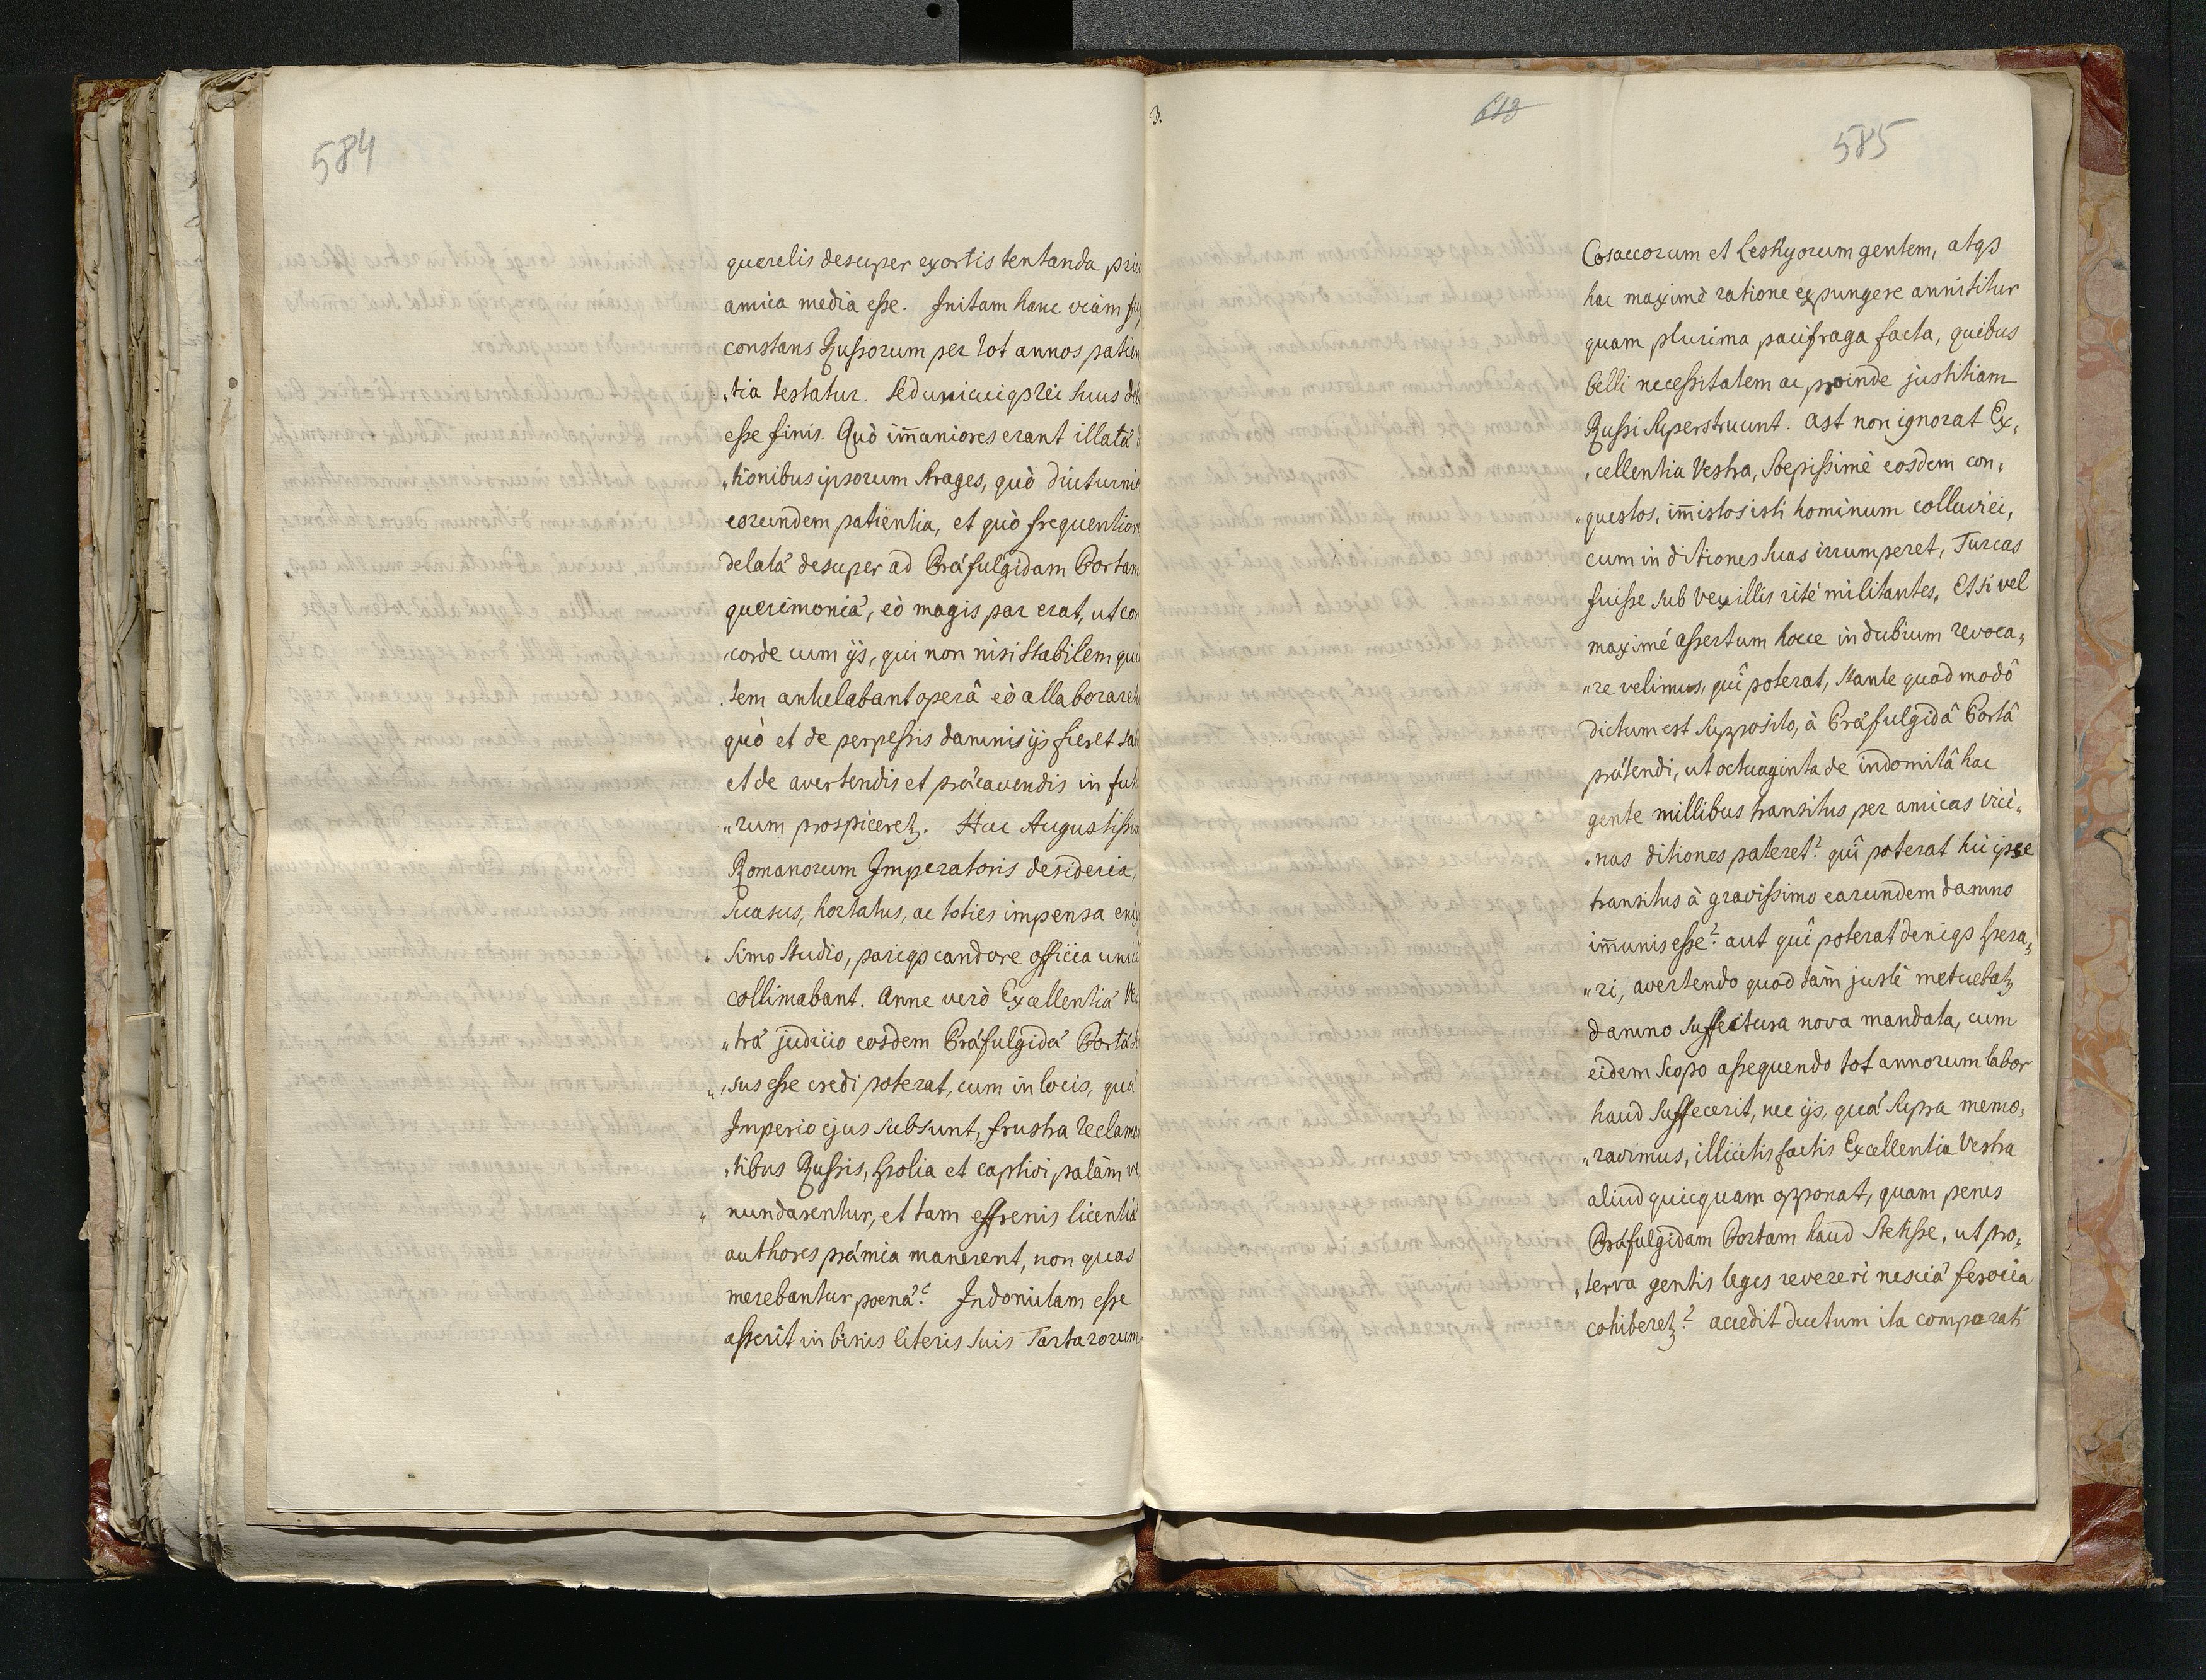 584
querelis desuper exortis tentanda
amica media eſse. Initam hanc viam
constans Ruſsorum per tot annos patien
„tia testatur. Sed unicuiqs rei suus
eſse finis. Quò im̄aniores erant illatæ
„tionibus ipsorum strages, quò diuturnio
eorundem patientia, et quò frequentior
delatæ desuper ad Præfulgidam Portam
querimoniæ, eò magis par erat, ut con
„corde cum ijs, qui non nisi stabilem
„tem anhelabant operâ eò allaboraret
quò et de perpeſsis damnis ijs fieret
et de avertendis et præcavendis in futu
„rum prospiceretz. Huc Augustiſsim
Romanorum Imperatoris desideria,
suasus, hortatus, ac toties impensa enix
„simo studio, pariqs candore officia unicè
collimabant. Anne verò Excellentiæ Ves
„træ judicio eosdem Præfulgidæ Portæ
„sus eſse credi poterat, cum in locis, quæ
Imperio ejus subsunt, frustra reclaman
„tibus Ruſsis, spolia et captivi palàm ve
„nundarentur, et tam effrenis licentiæ
authores præmia manerent, non quas
merebantur pœnæ? Indomitam eſse
aſserit in binis literis suis Tartarorum
3.
613
585
Cosaccorum et Leskyorum gentem, atqs
hac maximè ratione expungere annititur
quam plurima pacifraga facta, quibus
belli neceſsitatem ac proinde justitiam
Ruſsi superstruunt. Ast non ignorat Ex„
„cellentia Vestra, sæpiſsimè eosdem con„
„questos, im̄istos isti hominum colluviei,
cum in ditiones suas irrumperet, Turcas
fuiſse sub vexillis ritè militantes, Et si vel
maximè aſsertum hocce in dubium revoca„
„re velimus, quî poterat, stante quod modô
dictum est supposito, à Præfulgidâ Portâ
prætendi, ut octuaginta de indomitâ hac
gente millibus transitus per amicas vici„
„nas ditiones pateret? quî poterat hic ipse
transitus à graviſsimo earundem damno
im̄unis eſse? aut quî poterat deniqs spera„
„ri, avertendo quod tàm justè metuebatz
damno suffectura nova mandata, cum
eidem scopo aſsequendo tot annorum labor
haud suffecerit, nec ijs, quæ supra memo„
„ravimus, illicitis factis Excellentia Vestra
aliud quicquam opponat, quam penes
Præfulgidam Portam haud stetiſse, ut pro„
„terva gentis leges revereri nesciæ ferocia
cohiberetz? accedit ductum ita comparati